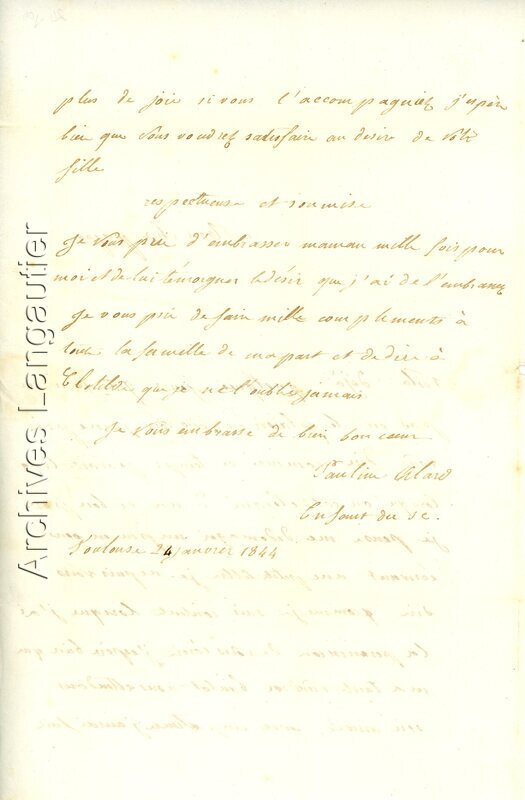 plus de joie si vous l'accompagniez j'espère
bien que vous voudrez satisfaire au desire de votre
fille
respectueuse et soumise
Je vous prie d'embrasser maman mille fois pour
moi et de lui témoigner le désir que j'ai de l'embrasser
Je vous prie de faire mille complements à
toute la famille de ma part et de dire à
Clotilde que je ne l'oublie jamais
Je vous embrasse de bien bon cœur
Pauline Alard
Enfant du sc.
Toulouse 24 janvier 1844
Archives Langautier